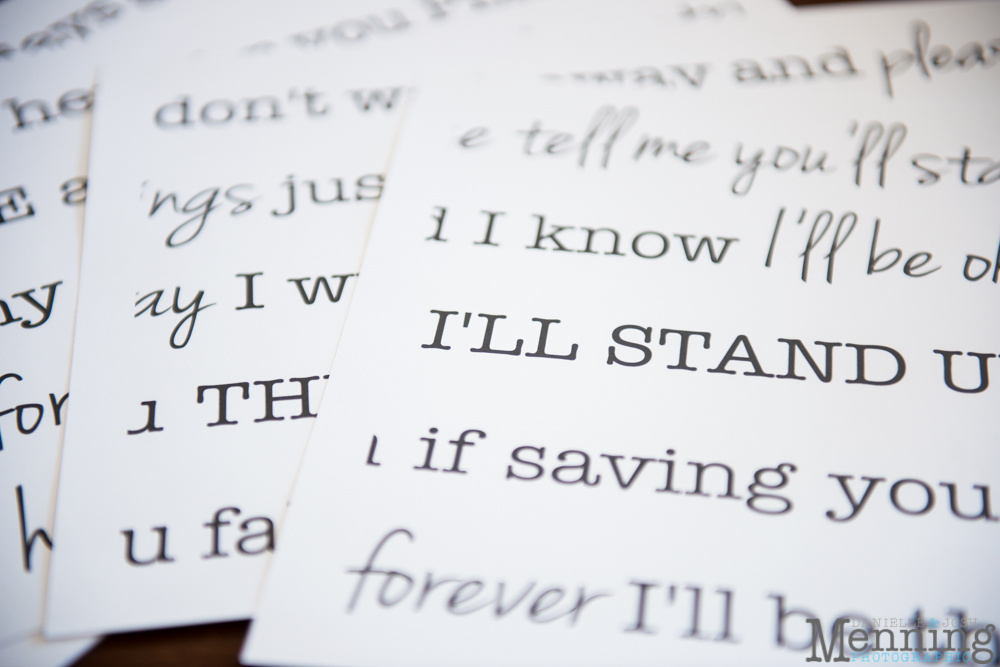 he
E a
for
h
don't w
ngs jus
ay I w
TH
u fa
way and pleas
e tell me you'll sta
I know I'll be ok
I'LL STAND U
if saving you
forever I'll be th
DANIELLE & JOSH
Menning
PHOTOGRAPHIC